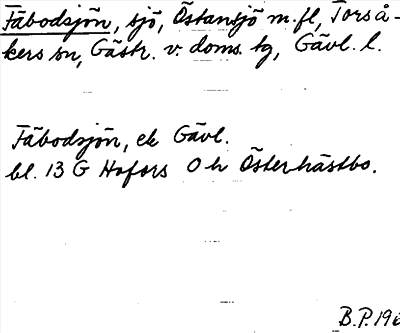 Fäbodsjön, sjö, Östansjö m.fl, Torså-
kers sn, Gästr. v. doms. tg, Gävl. l.
Fäbodsjön, ek Gävl.
bl. 13 G Hofors O h Österhästbo.
B.P. 19